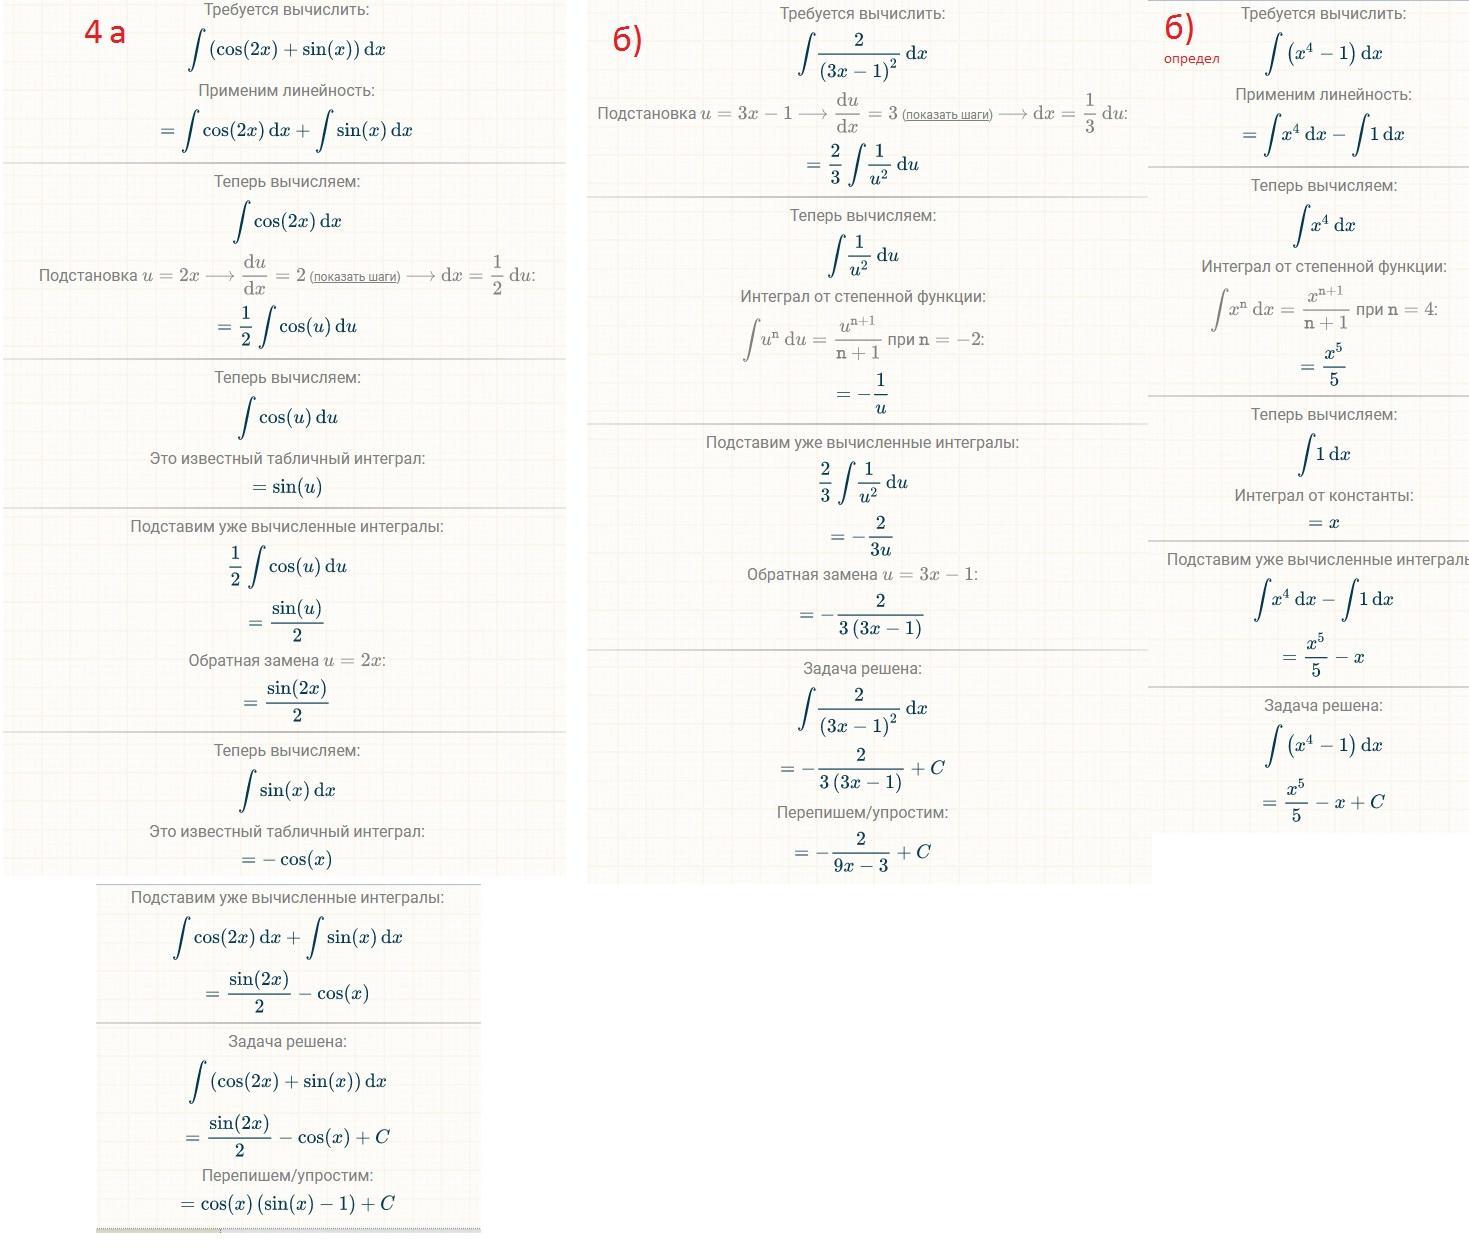 4 а
Требуется вычислить:
∫ (cos(2x) + sin(x)) dx
Применим линейность:
= ∫ cos(2x) dx + ∫ sin(x) dx
Теперь вычисляем:
∫ cos(2x) dx
Подстановка u = 2x ⟶ du/dx = 2 (показать шаги) ⟶ dx = 1/2 du:
= 1/2 ∫ cos(u) du
Теперь вычисляем:
∫ cos(u) du
Это известный табличный интеграл:
= sin(u)
Подставим уже вычисленные интегралы:
1/2 ∫ cos(u) du
= sin(u)/2
Обратная замена u = 2x:
= sin(2x)/2
Теперь вычисляем:
∫ sin(x) dx
Это известный табличный интеграл:
= − cos(x)
Подставим уже вычисленные интегралы:
∫ cos(2x) dx + ∫ sin(x) dx
= sin(2x)/2 − cos(x)
Задача решена:
∫ (cos(2x) + sin(x)) dx
= sin(2x)/2 − cos(x) + C
Перепишем/упростим:
= cos(x) (sin(x) − 1) + C
б)
Требуется вычислить:
∫ 2/(3x − 1)² dx
Подстановка u = 3x − 1 ⟶ du/dx = 3 (показать шаги) ⟶ dx = 1/3 du:
= 2/3 ∫ 1/u² du
Теперь вычисляем:
∫ 1/u² du
Интеграл от степенной функции:
∫ uⁿ du = uⁿ⁺¹/(n + 1) при n = −2:
= − 1/u
Подставим уже вычисленные интегралы:
2/3 ∫ 1/u² du
= − 2/3u
Обратная замена u = 3x − 1:
= − 2/3 (3x − 1)
Задача решена:
∫ 2/(3x − 1)² dx
= − 2/3 (3x − 1) + C
Перепишем/упростим:
= − 2/(9x − 3) + C
б)
определ
Требуется вычислить:
∫ (x⁴ − 1) dx
Применим линейность:
= ∫ x⁴ dx − ∫ 1 dx
Теперь вычисляем:
∫ x⁴ dx
Интеграл от степенной функции:
∫ xⁿ dx = xⁿ⁺¹/(n + 1) при n = 4:
= x⁵/5
Теперь вычисляем:
∫ 1 dx
Интеграл от константы:
= x
Подставим уже вычисленные интеграль
∫ x⁴ dx − ∫ 1 dx
= x⁵/5 − x
Задача решена:
∫ (x⁴ − 1) dx
= x⁵/5 − x + C